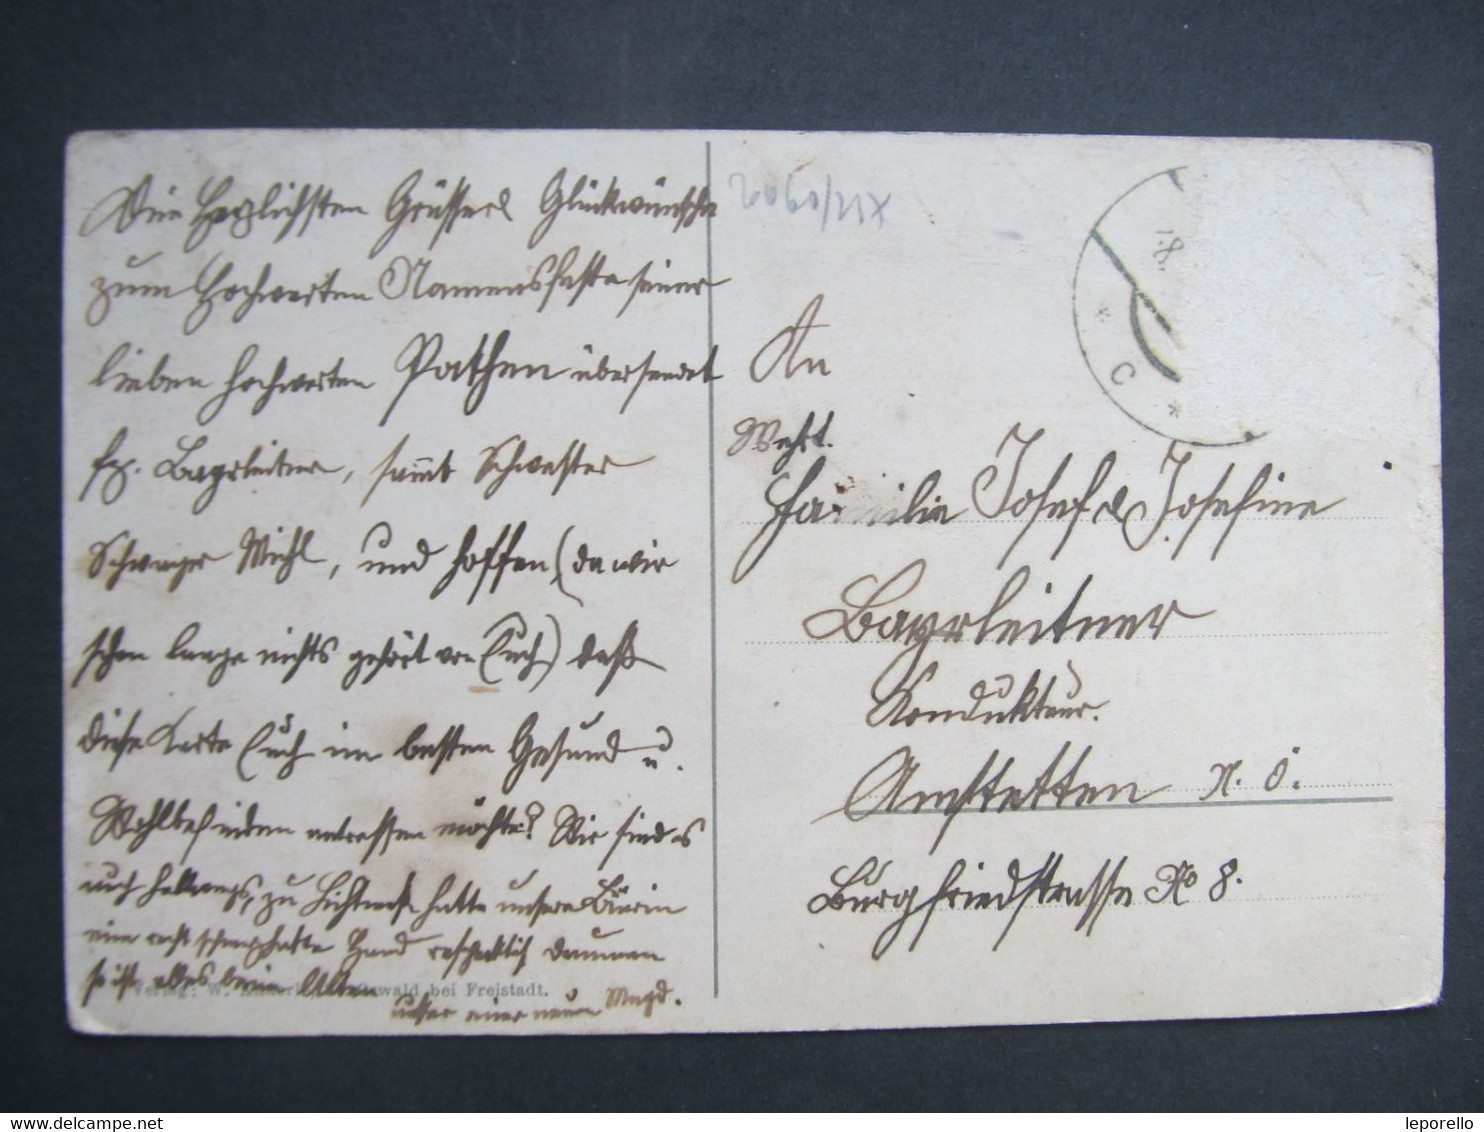 Die Herzlichsten Grüsse & Glückwünsche
zum Hochwerten Namensfeste seiner
lieben hochwerten Pathen übersendet
Fz. Bayrleitner, sammt Schwester
Schwager Michl, und hoffen (da wir
schon lange nichts gehört von Euch) daß
diese Karte Euch im besten Gesund u.
Wohlbefinden antreffen möchte? Wir sind es
auch, zu Lichtmeß hatte unsere
eine recht Hand
so ist alles beim Alten
ausser einer neuen Magd.
Verlag: W. Oswald bei Freistadt.
2090/09
XII
18.
* C *
An
Wehrt.
Familie Josef & Josefine
Bayrleitner
Kondukteur.
Amstetten N. Ö.
Burgfriedstrasse No 8.
leporello